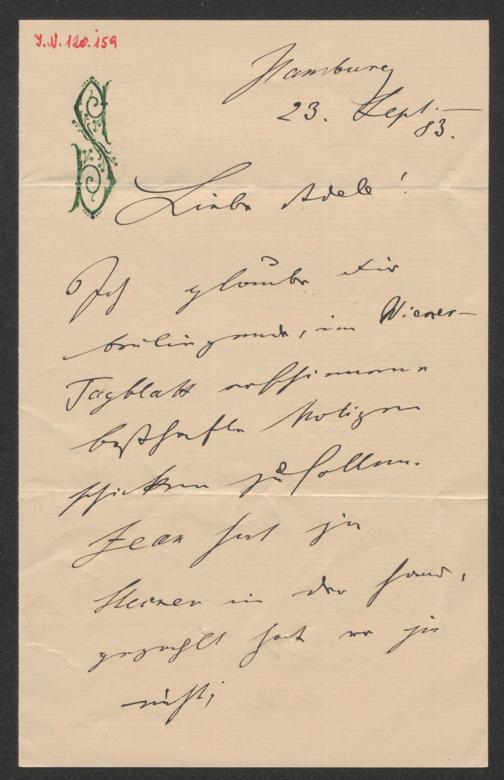 I.N. 120.159
Hamburg
23. Sept.
83.
Liebe Adele!
Ich glaube Dir
, im Wiener-
Tagblatt erschienene
boshafte Notizen
schicken zu sollen.
Jean hat ja
in der Hand,
gezahlt hat er ja
nicht;